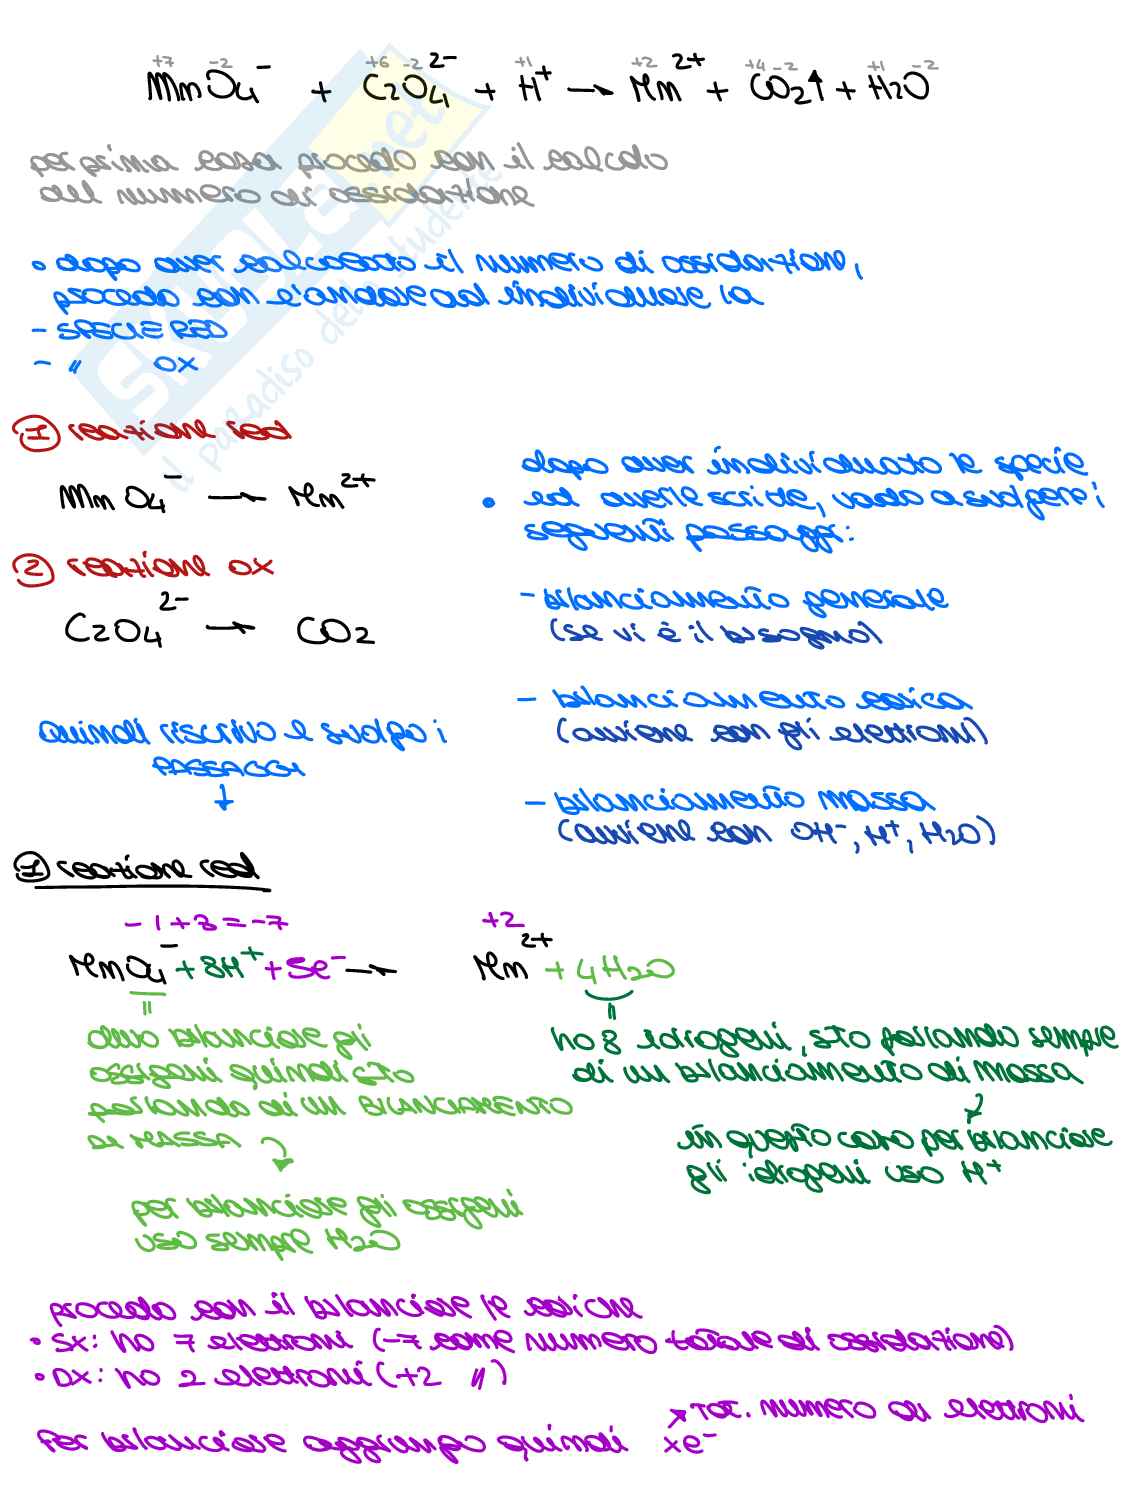 +7 -2 +6 -2 +1 +2 +4 -2 +1 -2
MnO4⁻ + C2O4²⁻ + H⁺ → Mn²⁺ + CO2↑ + H2O
per prima cosa procedo con il calcolo
del numero di ossidazione
• dopo aver calcolato il numero di ossidazione,
procedo con l'andare ad individuare la
- SPECIE RED
- " OX
① reazione red
MnO4⁻ → Mn²⁺
② reazione ox
C2O4²⁻ → CO2
• dopo aver individuato le specie
ed averle scritte, vado a svolgere i
seguenti passaggi:
- bilanciamento generale
(se vi è il bisogno)
- bilanciamento carica
(avviene con gli elettroni)
- bilanciamento massa
(avviene con OH⁻, H⁺, H2O)
quindi riscrivo e svolgo i
PASSAGGI
↓
① reazione red
-1+8=-7 +2
MnO4⁻ + 8H⁺ + 5e⁻ → Mn²⁺ + 4H2O
devo bilanciare gli
ossigeni quindi sto
parlando di un BILANCIAMENTO
DI MASSA
per bilanciare gli ossigeni
uso sempre H2O
ho 8 idrogeni, sto parlando sempre
di un bilanciamento di massa
in questo caso per bilanciare
gli idrogeni uso H⁺
procedo con il bilanciare le cariche
• SX: ho 7 elettroni (-7 come numero totale di ossidazione)
• DX: ho 2 elettroni (+2 ")
Per bilanciare aggiungo quindi xe⁻
→ TOT. numero di elettroni
SKUOLA.net
il paradiso dello studente